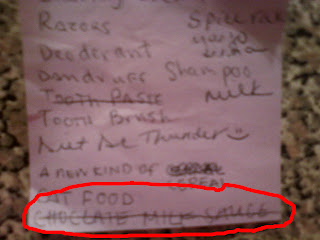 Razors
Spice rac
Deoderant
mayo
Dandruff Shampoo
Tooth Paste
milk
Tooth Brush
Thunder
A NEW KIND OF CEREAL
CEREAL
CAT FOOD
CHOCLATE MILK SAUCE